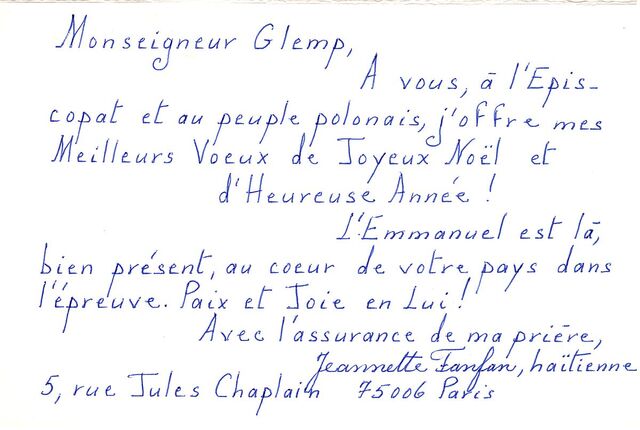 Monseigneur Glemp,
A vous, à l'Epis-
copat et au peuple polonais, j'offre mes
Meilleurs Voeux de Joyeux Noël et
d'Heureuse Année !
L'Emmanuel est là,
bien présent, au coeur de votre pays dans
l'épreuve. Paix et Joie en Lui !
Avec l'assurance de ma prière,
Jeannette Fanfan, haïtienne
5, rue Jules Chaplain 75006 Paris